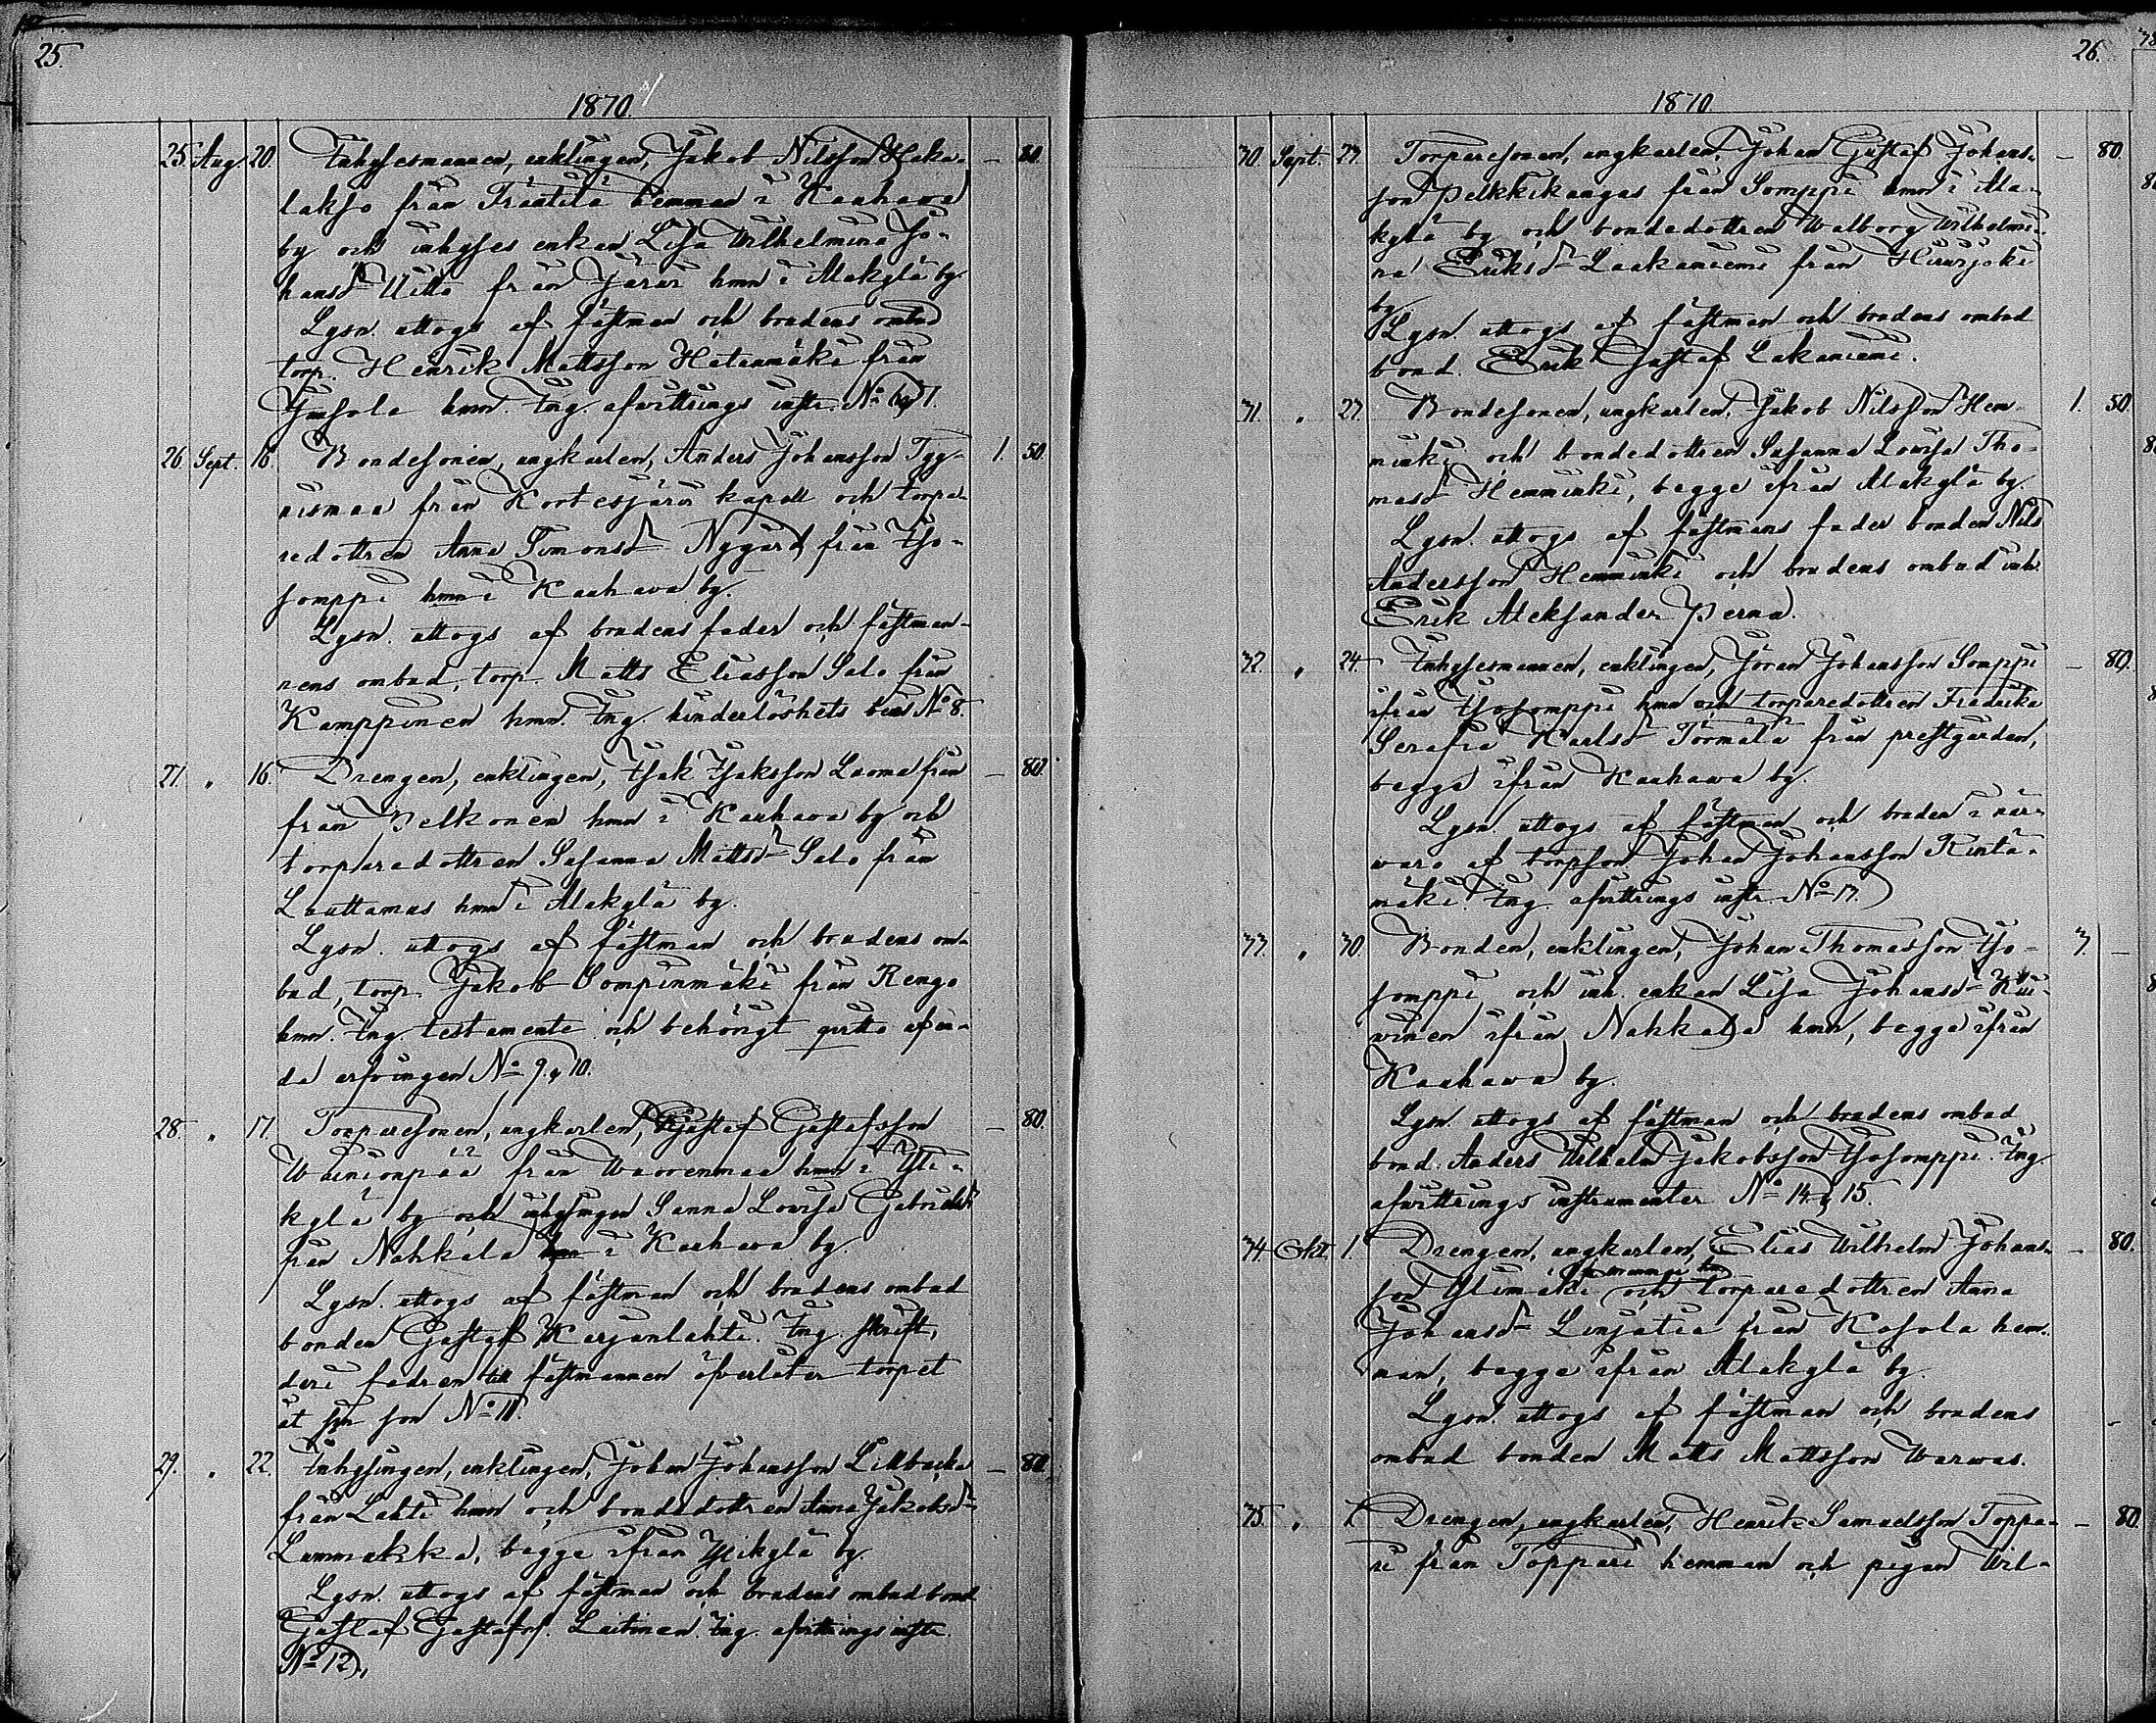 25.
1870.
25. Aug. 20. Inhysesmannen, enklingen, Jakob Nilsson Haka- — 80.
lakso från Träntilä hemman i Kauhava
by och inhyses enkan Lisa Wilhelmina Jo-
hansdr Uitto från Järvi hmn i Alakylä by.
Lysn. uttogs af fästman och brudens ombud
torp. Henrik Mattsson Hetamäki från
Jussola hmn. Ing. afvittrings instr. No 6, 7.
26. Sept. 16. Bondesonen, ungkarlen, Anders Johansson Tyy- 1. 50.
nismaa från Kortesjärvi kapell och torpa-
redottren Anna Simonsdr Nygård från Iso-
somppi hmn i Kauhava by.
Lysn. uttogs af brudens fader och fästman-
nens ombud, torp. Matts Eliasson Salo från
Kamppinen hmn. Ing. hinderlöshets bevis No 8.
27. " 16. Drengen, enklingen, Isak Isaksson Laoma från — 80.
från Pelkonen hmn i Kauhava by och
torparedottren Susanna Mattsdr Salo från
Lauttamus hmn i Alakylä by.
Lysn. uttogs af fästman och brudens om-
bud, torp. Jakob Sompinmäki från Rengo
hmn. Ing. testamente och behörigt qvitto af en-
da arfvingen No 9, 10.
28. " 17. Torparesonen, ungkarlen, Gustaf Gustafsson — 80.
Wainionpää från Warrenmaa hmn i Yli-
kylä by och inhysingen Sanna Lovisa Gabrielsdr
från Nahkala hmn i Kauhava by.
Lysn. uttogs af fästman och brudens ombud
bonden Gustaf Karjanlahti. Ing. skrift,
deri fadren till fästmannen öfverlåter torpet
åt sin son No 11.
29. " 22. Inhysingen, enklingen, Johan Johansson Lillbacka — 80.
från Lahti hmn och bondedottren Anna Jakobsdr
Lammakka, begge ifrån Ylikylä by.
Lysn. uttogs af fästman och brudens ombud bond
Gustaf Gustafss. Laitinen. Ing. afvittrings instr.
No 12.
26.
1870
30. Sept. 23. Torparesonen, ungkarlen, Johan Gustaf Johans- — 80.
son Pelkkikangas från Somppi hmn i Ala-
kylä by och bondedottren Walborg Wilhelmi-
na Eriksdr Laakaniemi från Hirvijoki
by.
Lysn. uttogs af fästman och brudens ombud
bond. Erik Gustaf Lakaniemi.
31. " 23. Bondesonen, ungkarlen, Jakob Nilsson Hem- 1. 50.
minki och bondedottren Susanna Lovisa Tho-
masdr Hemminki, begge ifrån Alakylä by.
Lysn. uttogs af fästmans fader bonden Nils
Andersson Hemminki och brudens ombud inh.
Erik Aleksander Perna.
32. " 24. Inhysesmannen, enklingen, Jöran Johansson Somppi — 80.
ifrån Isosomppi hmn och torparedottren Fredrika
Serafia Karlsdr Törmälä från prestgården,
begge ifrån Kauhava by.
Lysn. uttogs af fästman och bruden i när-
varo af torpson. Johan Johansson Rinta-
mäki. Ing. afvittrings instr. No 13.
33. " 30. Bonden, enklingen, Johan Thomasson Iso- 3. —
somppi och inh. enkan Lisa Johansdr Kii-
vinen ifrån Nahkala hmn, begge ifrån
Kauhava by.
Lysn. uttogs af fästman och brudens ombud
bond. Anders Wilhelm Jakobsson Isosomppi. Ing.
afvittrings instrumenter No 14, 15.
34. Okt. 1. Drengen, ungkarlen, Elias Wilhelm Johans- — 80.
son Ylimäki och torparedottren Anna
Johansdr Linjatie från Kosola hem-
man, begge ifrån Alakylä by.
Lysn. uttogs af fästman och brudens
ombud bonden Matts Mattsson Warwas.
35. " 1. Drengen, ungkarlen, Henrik Samuelsson Toppa- — 80.
ri från Toppari hemman och pigan Wil-